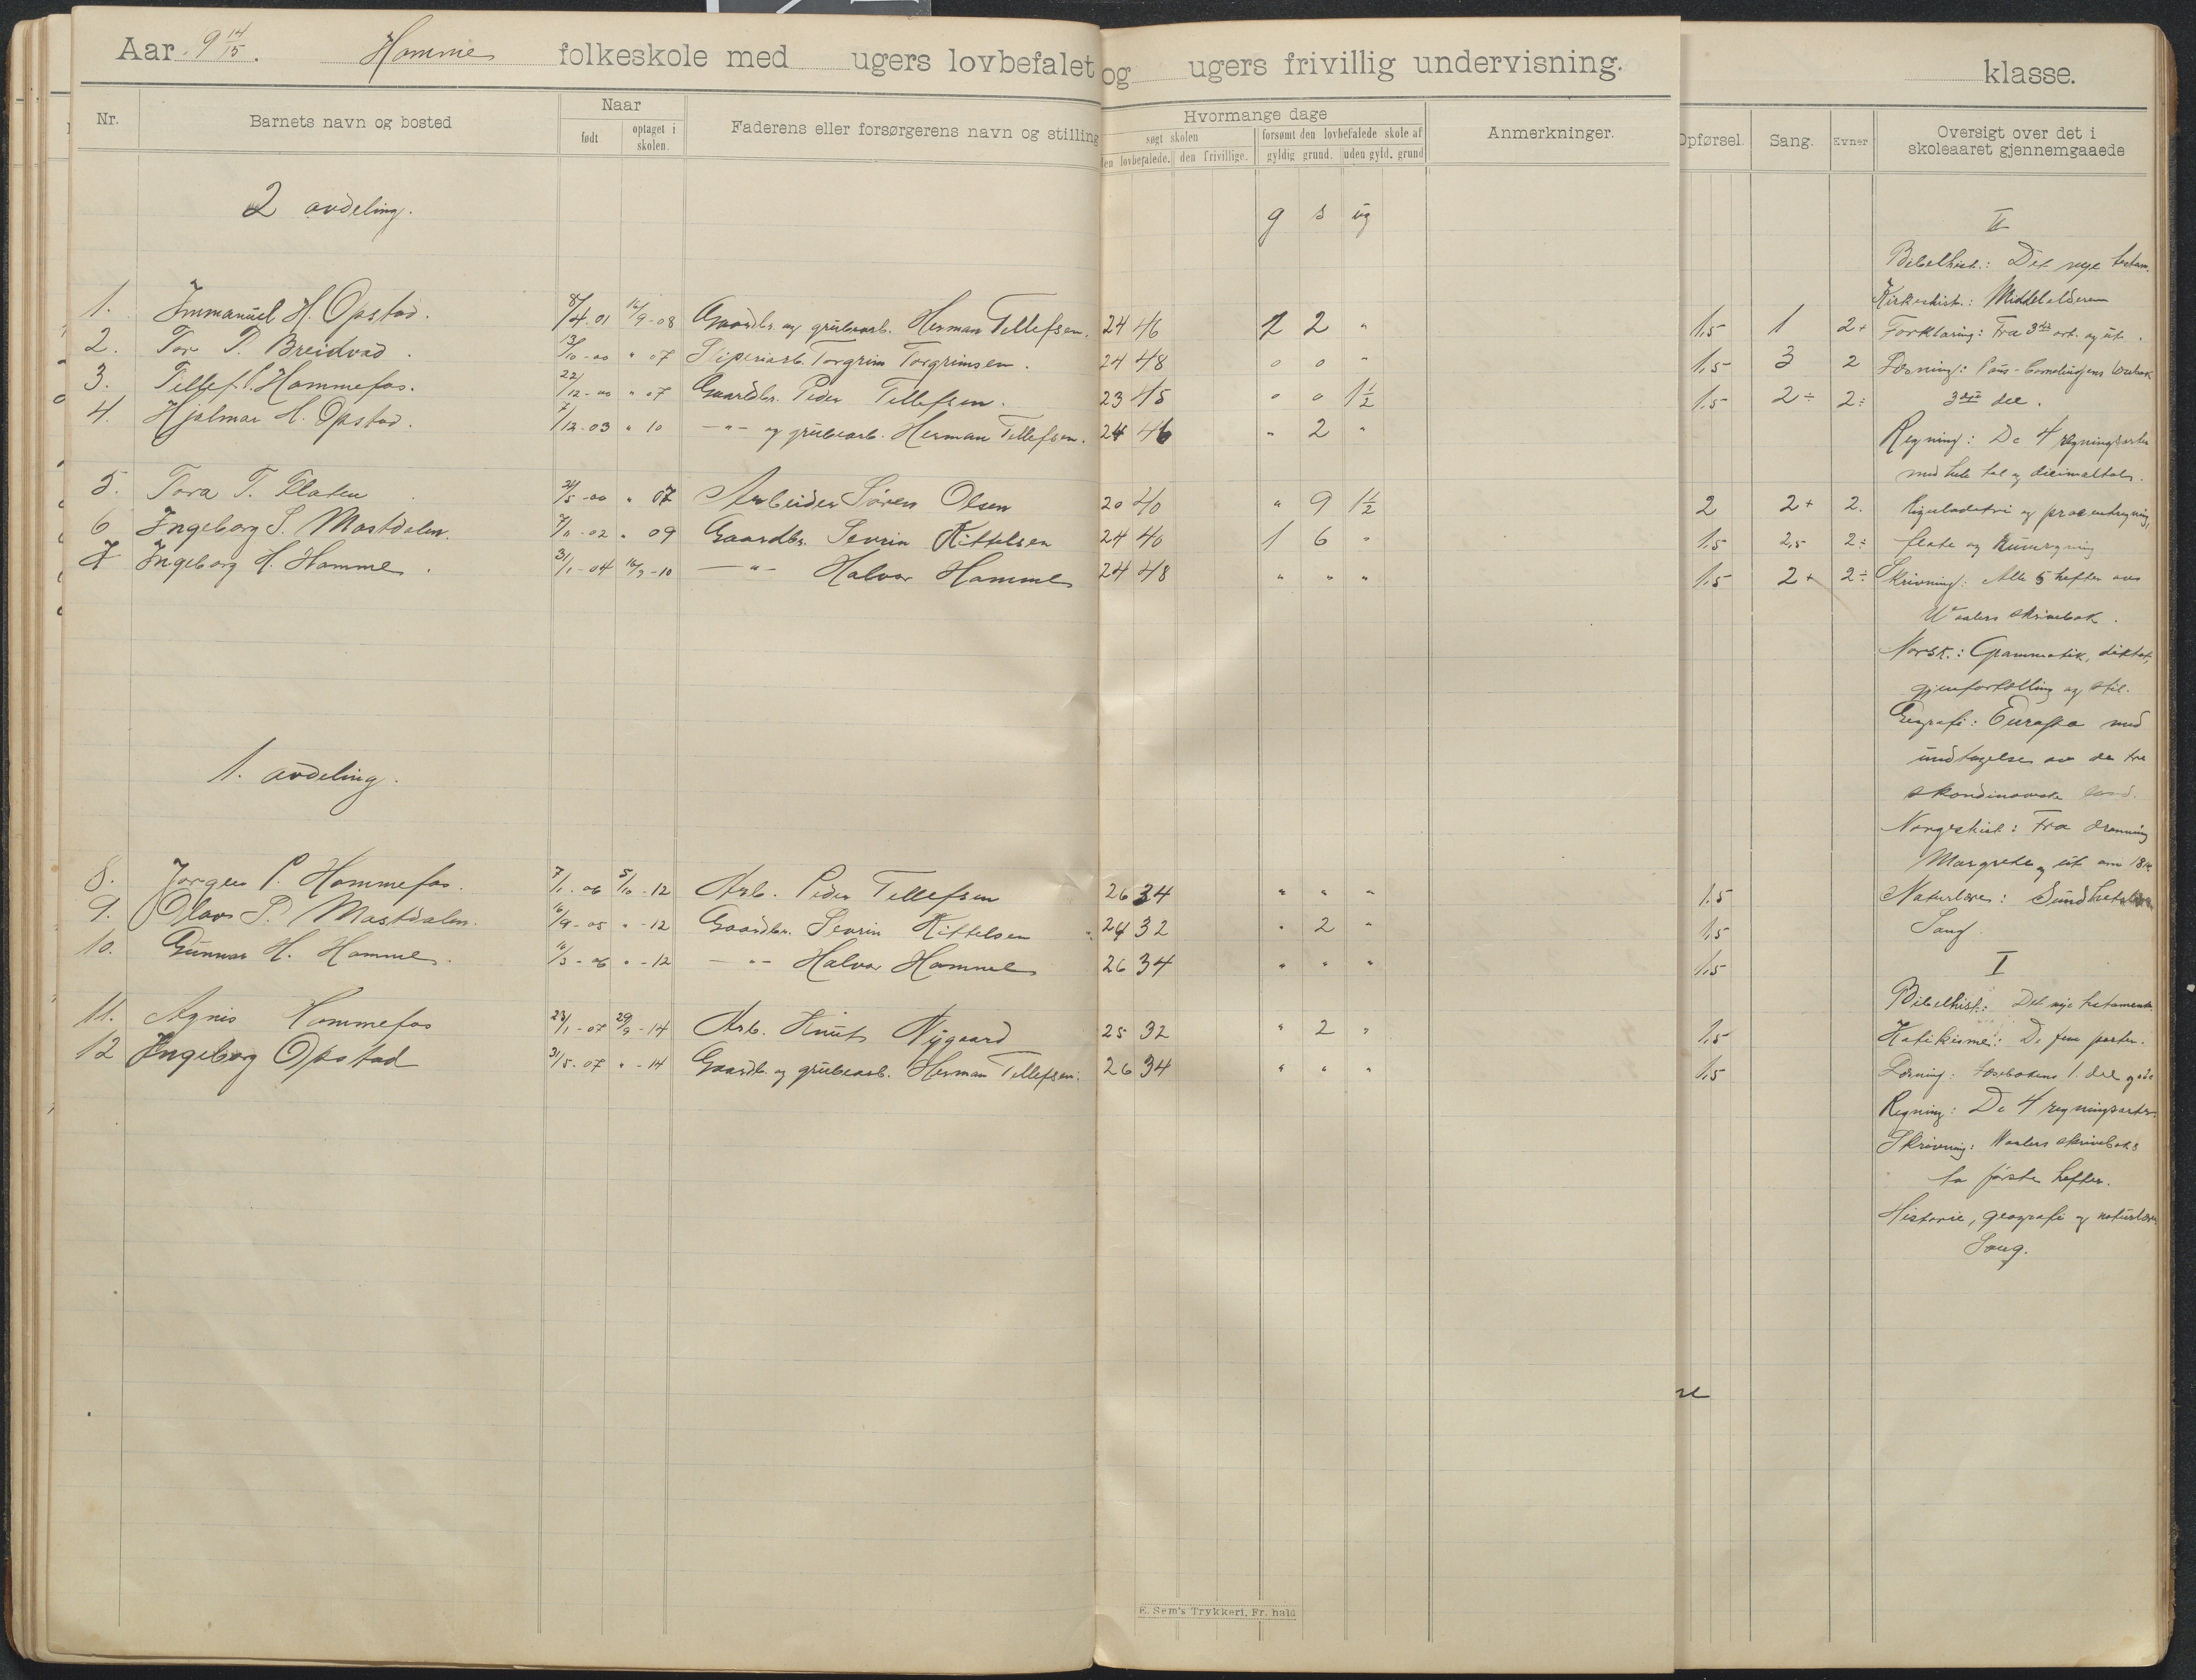 Aar 9 14/15. Homme folkeskole med ugers lovbefalet og ugers frivillig undervisning. klasse.
Nr. Barnets navn og bosted Naar født optaget i skolen. Faderens eller forsørgerens navn og stilling Hvormange dage søgt skolen den lovbefalede. den frivillige. forsømt den lovbefalede skole af gyldig grund. uden gyld. grund Anmerkninger. Opførsel. Sang. Evner Oversigt over det i skoleaaret gjennemgaaede
2 avdeling. g s ug
1. Immanuel H. Opstad. 8/4.01 16/9-08 Gaardbr. og grubearb. Herman Tellefsen. 24 46 2 2 " 1.5 1 2+
2. Tor T. Breidvad. 13/10-00 " 07 Sliperiarb. Torgrim Torgrimsen. 24 48 0 0 " 1.5 3 2
3. Tellef P. Hommefos. 22/12-00 " 07 Gaardbr. Peder Tellefsen. 23 45 0 0 1 1/2 1.5 2÷ 2÷
4. Hjalmar H. Opstad. 7/12.03 " 10 -"- og grubearb. Herman Tellefsen. 24 46 " 2 "
5. Tora T. Flaten 21/5-00 " 07 Arbeider Søren Olsen 20 40 " 9 1 1/2 2 2+ 2.
6. Ingeborg S. Mostdalen. 7/11-02 " 09 Gaardbr. Sevrin Kittelsen 24 40 1 6 " 1.5 2,5 2÷
7 Ingeborg H. Homme. 31/1-04 16/9-10 -"- Halvor Homme 24 48 " " " 1.5 2+ 2÷
1. avdeling.
8. Jørgen P. Hommefos. 7/1-06 5/10-12 Arb. Peder Tellefsen 26 34 " " " 1.5
9. Olav S. Mostdalen. 16/9-05 " -12 Gaardbr. Sevrin Kittelsen 24 32 " 2 " 1.5
10. Gunnar H. Homme. 16/3-06 " -12 -"- Halvor Homme 26 34 " " " 1.5
11. Agnes Hommefos 23/1-07 29/9-14 Arb. Knut Nygaard 25 32 " 2 " 1.5
12 Ingeborg Opstad 31/5.07 " -14 Gaardb. og grubearb. Herman Tellefsen. 26 34 " " " 1.5
II
Bibelhist.: Det nye testam.
Kirkehist.: Middelalderen
Forklaring: Fra 3die art. og ut.
Læsning:
3die del.
Regning: De 4 regningsarter
med hele tal og decimaltal.
Reguladetri og procentregning,
flate og rumregning
Skrivning: Alle 5 hefter av
Waalers skrivebok.
Norsk: Grammatik, diktat,
gjenfortelling og stil.
Geografi: Europa med
undtagelse av de tre
skandinaviske land.
Norgeshist: Fra dronning
Margrete og ut om 1814
Naturlære: Sundhetslære
Sang
I
Bibelhist.: Det nye testamente
Katekisme: De fem parter.
Læsning: Læsebokens 1. del
Regning: De 4 regningsarter
Skrivning: Waalers skriveboks
to første hefter.
Historie, geografi og naturlære
Sang.
E. Sem's Trykkeri, Fr. hald